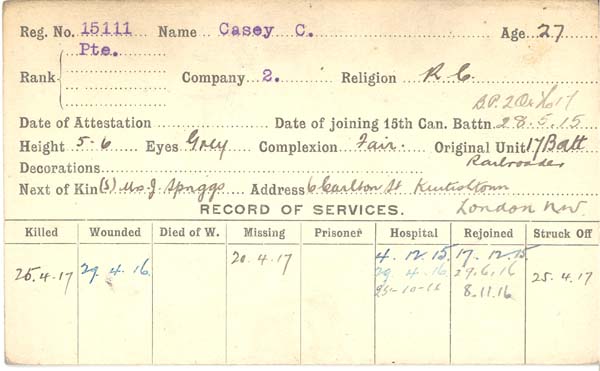 Reg. No. 15111 Name Casey C. Age 27
Pte.
Rank Company 2. Religion R C.
Date of Attestation Date of joining 15th Can. Battn. 28.5.15
Height 5-6 Eyes Grey Complexion Fair. Original Unit 17 Batt
Decorations Railroader
Next of Kin (S) Mrs. J. Spriggs Address 6 Carlton St Kentishtown
RECORD OF SERVICES. London N.W.
Killed Wounded Died of W. Missing Prisoner Hospital Rejoined Struck Off
20.4.17 4.12.15. 17.12.15.
25.4.17 29.4.16. 29.4.16 29.6.16 25.4.17
25-10-16 8.11.16